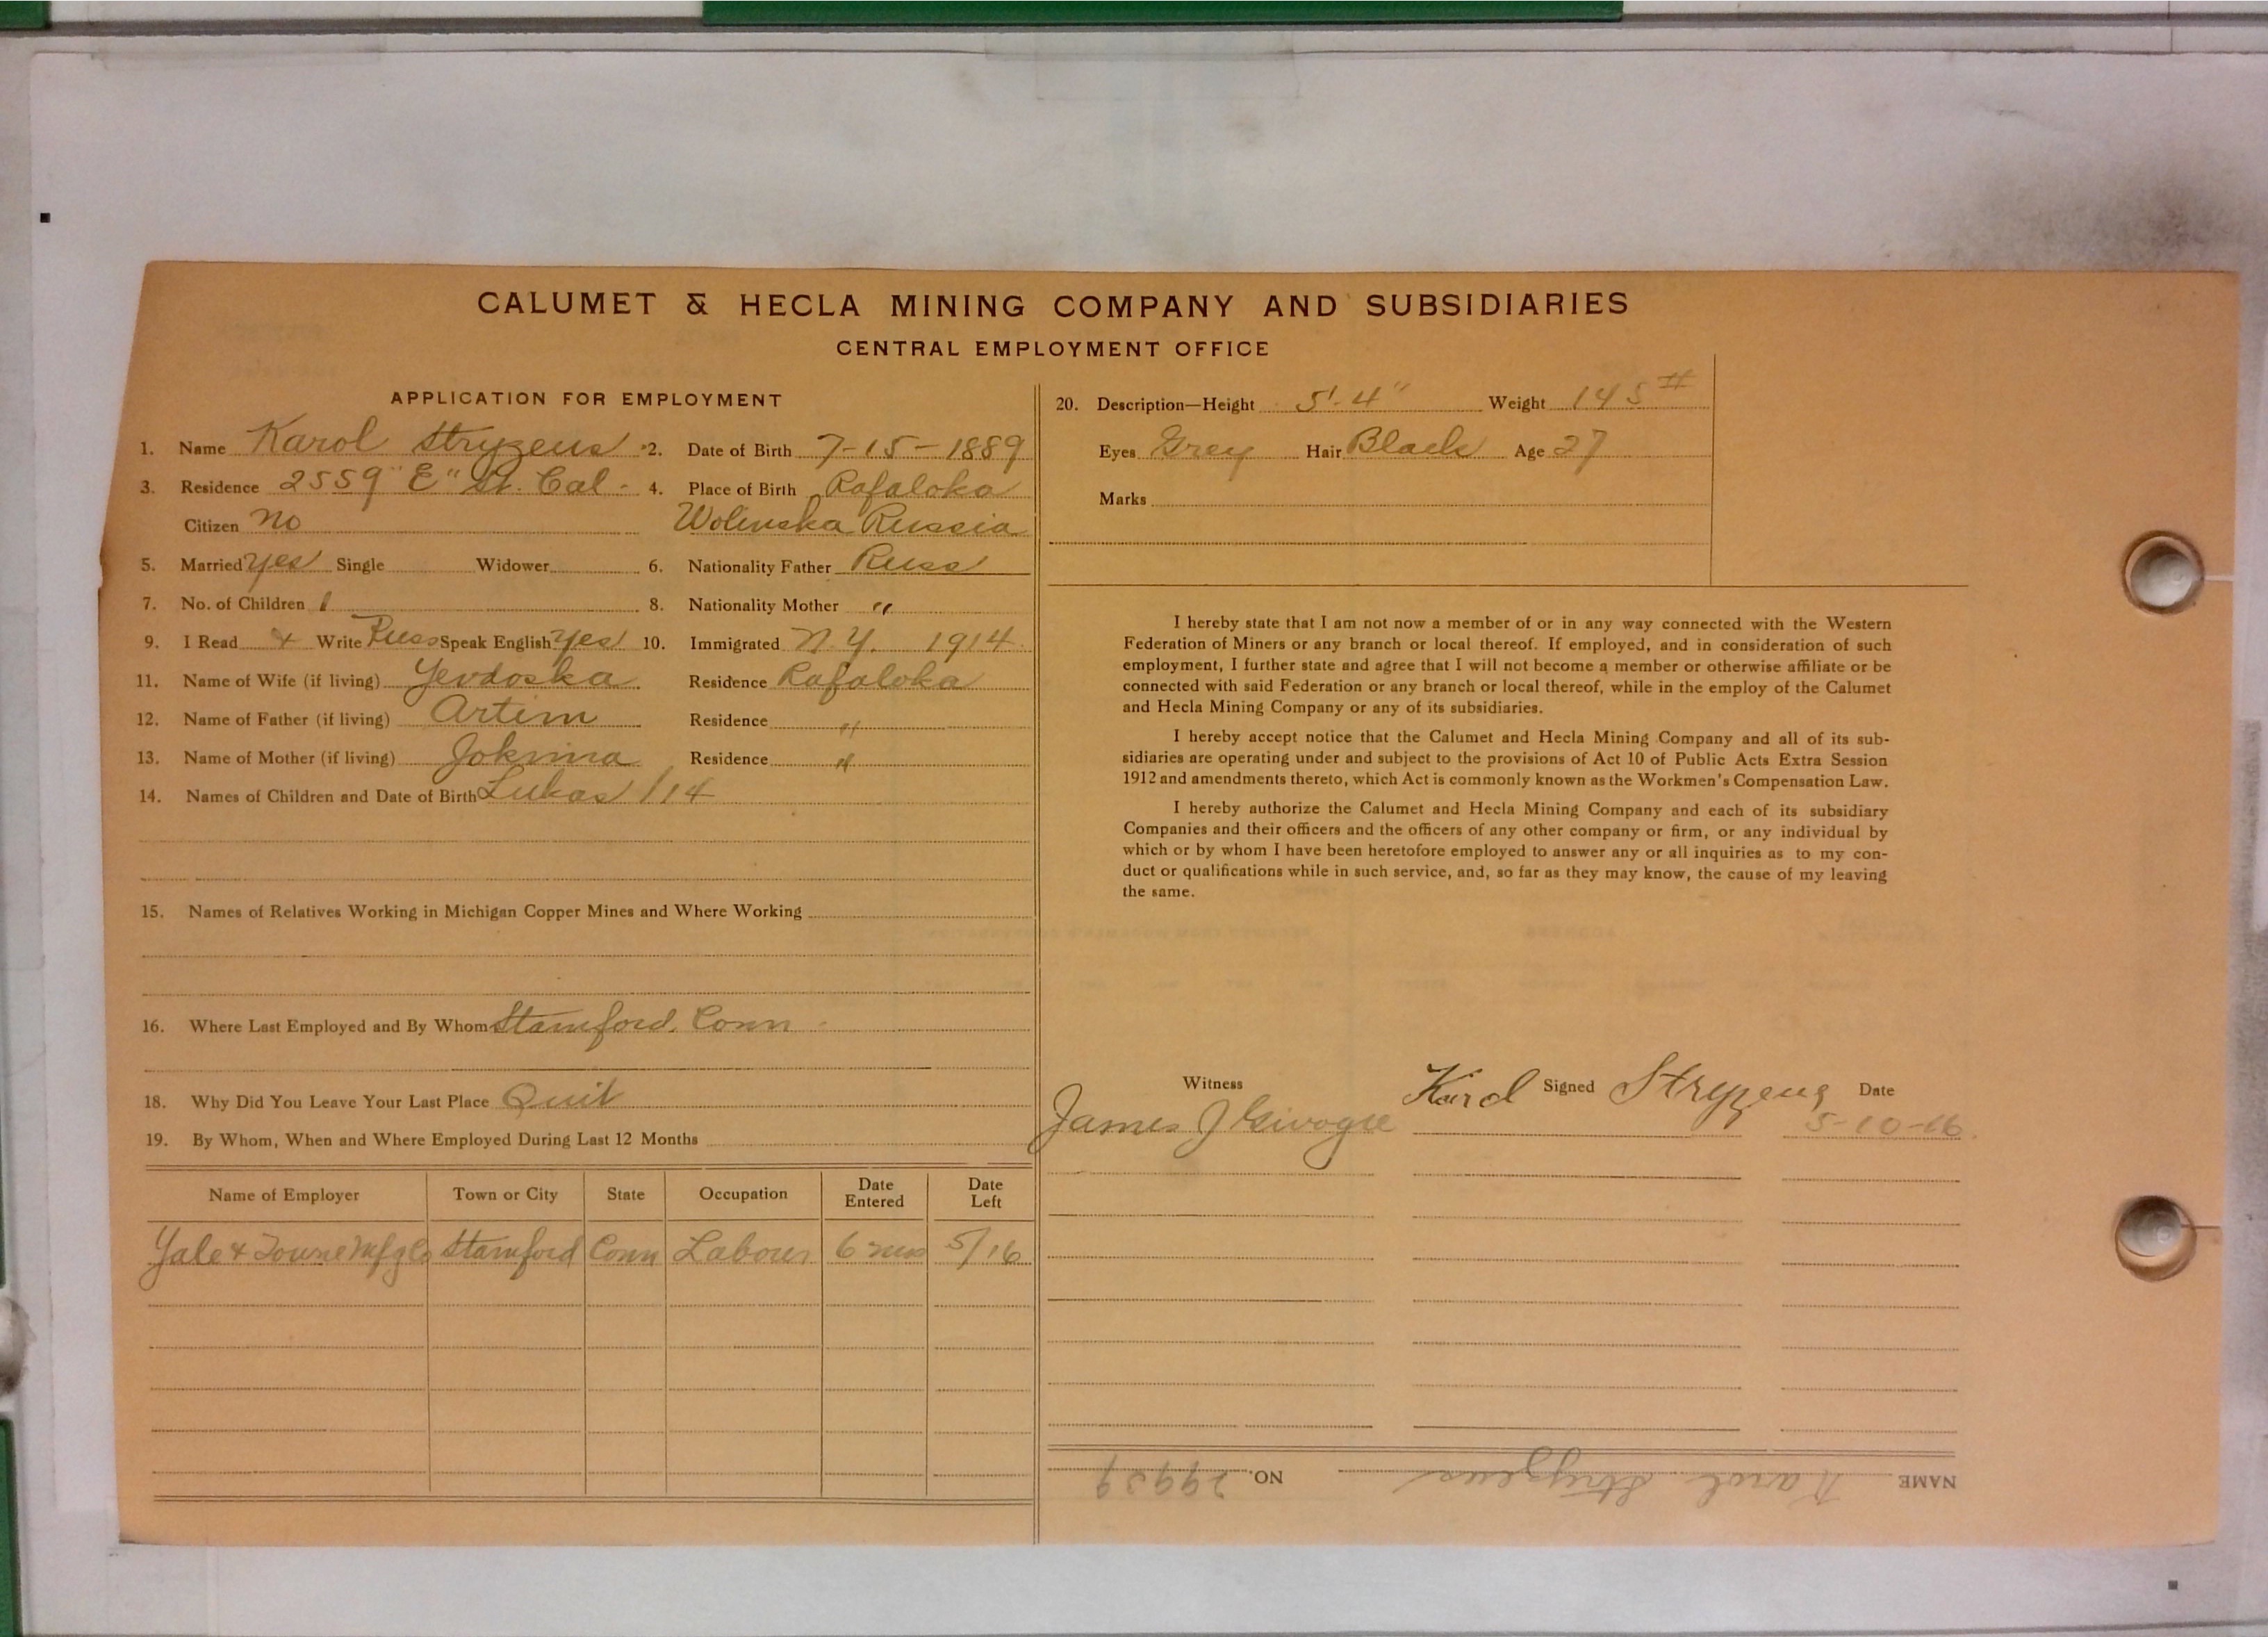 CALUMET & HECLA MINING COMPANY AND SUBSIDIARIES
CENTRAL EMPLOYMENT OFFICE
APPLICATION FOR EMPLOYMENT
1. Name Karol Stryzeus 2. Date of Birth 7-15-1889
3. Residence 2559 "E" St. Cal. 4. Place of Birth Rafaloka
Citizen no Wolinska Russia
5. Married yes Single Widower 6. Nationality Father Russ
7. No. of Children 1 8. Nationality Mother "
9. I Read & Write Russ Speak English yes 10. Immigrated N.Y. 1914
11. Name of Wife (if living) Yevdoska Residence Rafaloka
12. Name of Father (if living) Artim Residence "
13. Name of Mother (if living) Jokima Residence "
14. Names of Children and Date of Birth Lukas 1/14
15. Names of Relatives Working in Michigan Copper Mines and Where Working
16. Where Last Employed and By Whom Stamford, Conn
18. Why Did You Leave Your Last Place Quit
19. By Whom, When and Where Employed During Last 12 Months
Name of Employer Town or City State Occupation Date Entered Date Left
Yale & Towne Mfg Co Stamford Conn Labour 6 mos 5/16
20. Description—Height 5'-4" Weight 145#
Eyes Grey Hair Black Age 27
Marks
I hereby state that I am not now a member of or in any way connected with the Western
Federation of Miners or any branch or local thereof. If employed, and in consideration of such
employment, I further state and agree that I will not become a member or otherwise affiliate or be
connected with said Federation or any branch or local thereof, while in the employ of the Calumet
and Hecla Mining Company or any of its subsidiaries.
I hereby accept notice that the Calumet and Hecla Mining Company and all of its sub-
sidiaries are operating under and subject to the provisions of Act 10 of Public Acts Extra Session
1912 and amendments thereto, which Act is commonly known as the Workmen's Compensation Law.
I hereby authorize the Calumet and Hecla Mining Company and each of its subsidiary
Companies and their officers and the officers of any other company or firm, or any individual by
which or by whom I have been heretofore employed to answer any or all inquiries as to my con-
duct or qualifications while in such service, and, so far as they may know, the cause of my leaving
the same.
Witness Signed Date
James J Karol Stryzeus 5-10-16
NAME Karol Stryzeus NO. 29939